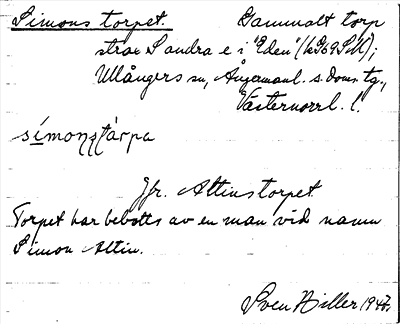 Simons torpet. Gammalt torp
strax S andra e i "Eden" (k369SM);
Ullångers sn, Ångermanl. s. doms. tg.,
Västernorrl. l.
símonstárpa
Jfr. Altinstorpet
Torpet har bebotts av en man vid namn
Simon Altin.
Sven Hiller 1947.